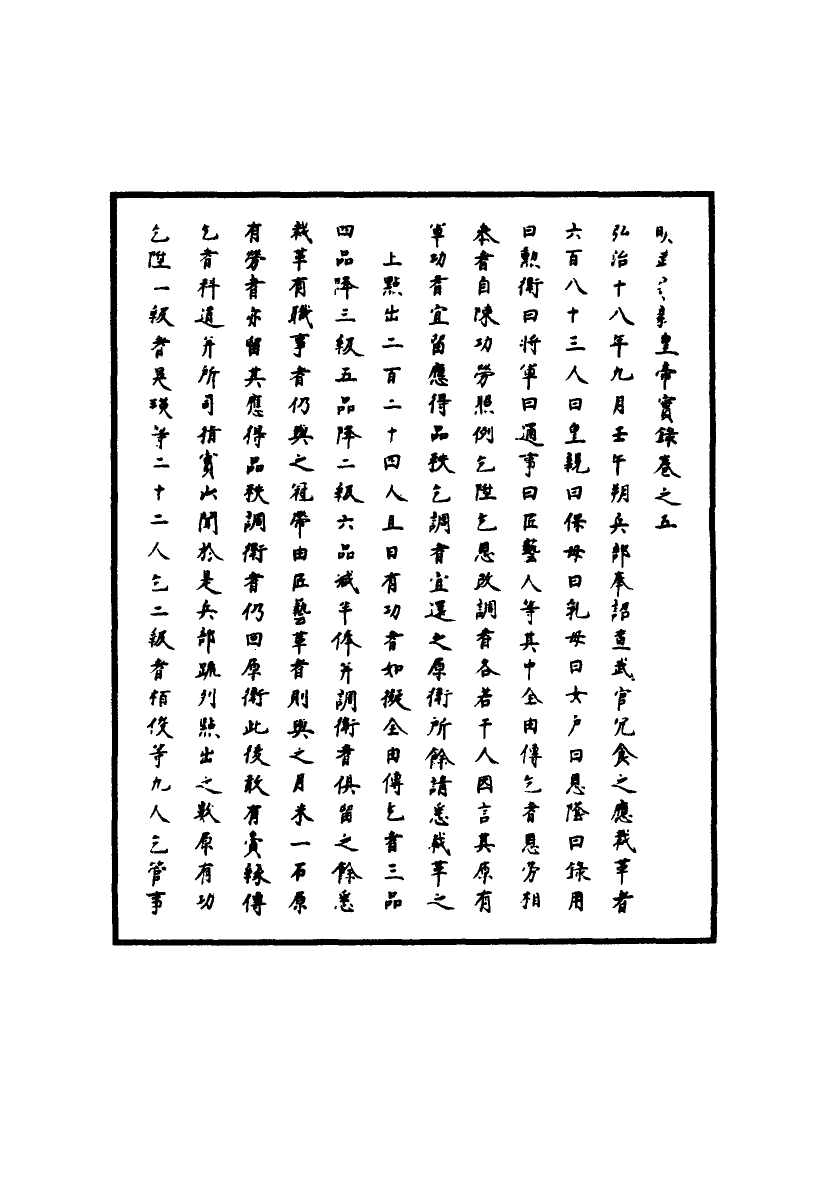 皇帝實錄卷之五
弘治十八年九月壬午朔兵部奉詔查武官冗食之應裁革者
六百八十三人曰皇親曰保母曰乳母曰女戶曰恩蔭曰錄用
曰勲衛曰將軍曰通事曰匠藝人等其中全由傳乞者恩勞相
叅者自陳功勞照例乞陞乞恩改調者各若干人因言其原有
軍功者宜留應得品秩乞調者宜還之原衛所餘請悉裁革之
上點出二百二十四人且曰有功者如擬全由傳乞者三品
四品降三級五品降二級六品減半俸并調衛者俱留之餘悉
裁革有職事者仍與之冠帶由匠藝革者則與之月米一石原
有勞者亦留其應得品秩調衛者仍回原衛此後敢有夤緣傳
乞者科道并所司指實以聞於是兵部疏列點出之數原有功
乞陞一級者吳瑛等二十二人乞二級者栢俊等九人乞管事